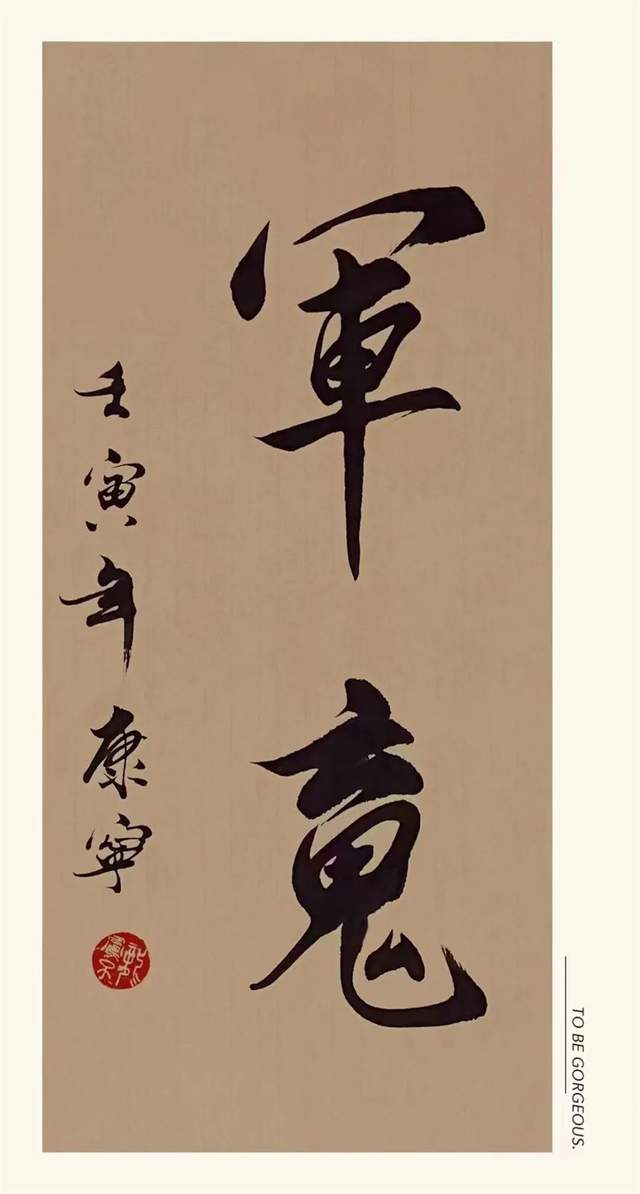 軍魂
壬寅年康寧
TO BE GORGEOUS.